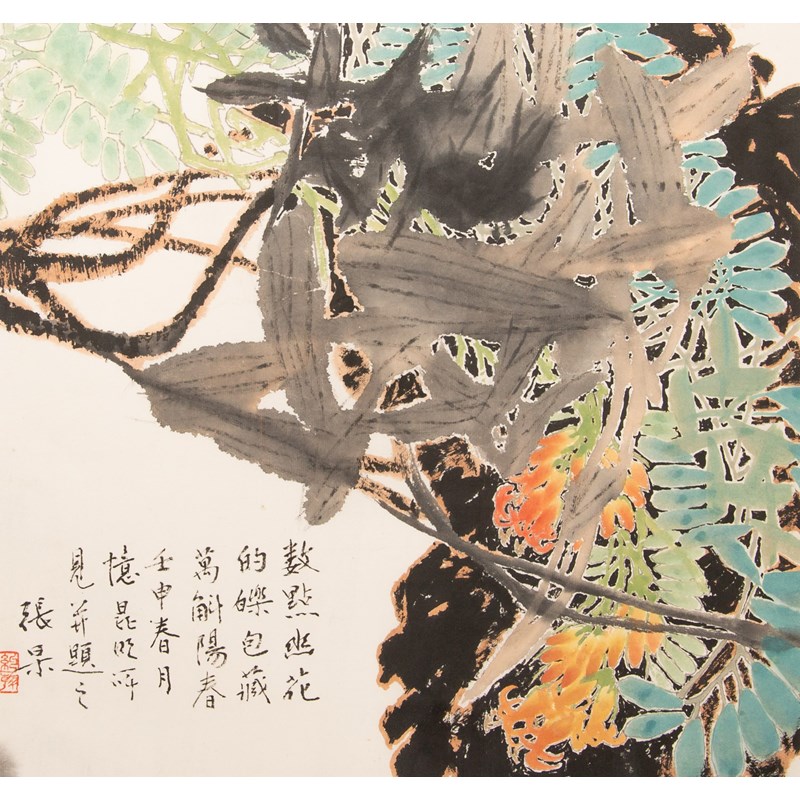 數點幽花
的皪包藏
萬斛陽春
壬申春月
憶昆明所
見并題之
張杲